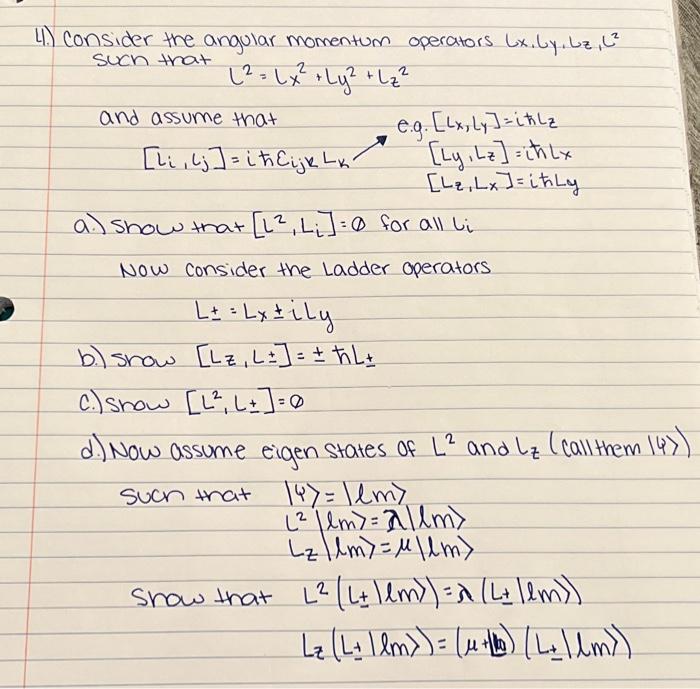 4.) Consider the angular momentum operators Lx, Ly, Lz, L²
such that
L² = Lx² + Ly² + Lz²
and assume that
e.g. [Lx, Ly] = iħLz
[Li, Lj] = iħεijk Lk
[Ly, Lz] = iħLx
[Lz, Lx] = iħLy
a.) Show that [L², Li] = 0 for all Li
Now consider the Ladder operators
L± = Lx ± iLy
b.) Show [Lz, L±] = ± ħL±
c.) Show [L², L±] = 0
d.) Now assume eigen states of L² and Lz (call them |Ψ⟩)
such that |Ψ⟩ = |lm⟩
L² |lm⟩ = λ|lm⟩
Lz |lm⟩ = μ|lm⟩
Show that L² (L± |lm⟩) = λ (L± |lm⟩)
Lz (L± |lm⟩) = (μ ) (L± |lm⟩)